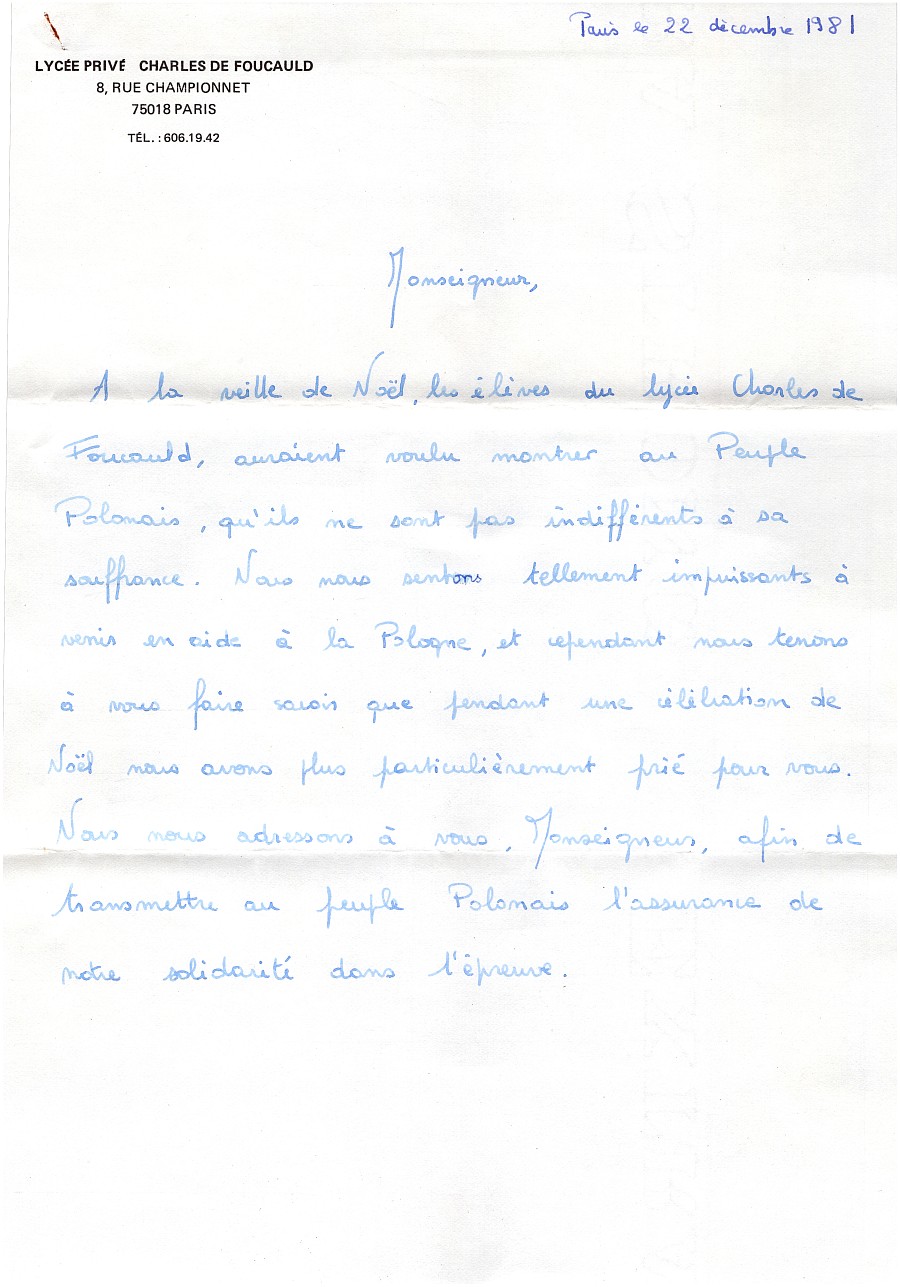 Paris le 22 décembre 1981
LYCÉE PRIVÉ CHARLES DE FOUCAULD
8, RUE CHAMPIONNET
75018 PARIS
TÉL. : 606.19.42
Monseigneur,
A la veille de Noël, les élèves du lycée Charles de
Foucauld, auraient voulu montrer au Peuple
Polonais, qu'ils ne sont pas indifférents à sa
souffrance. Nous nous sentons tellement impuissants à
venir en aide à la Pologne, et cependant nous tenons
à vous faire savoir que pendant une célébration de
Noël nous avons plus particulièrement prié pour vous.
Nous nous adressons à vous, Monseigneur, afin de
transmettre au peuple Polonais l'assurance de
notre solidarité dans l'épreuve.